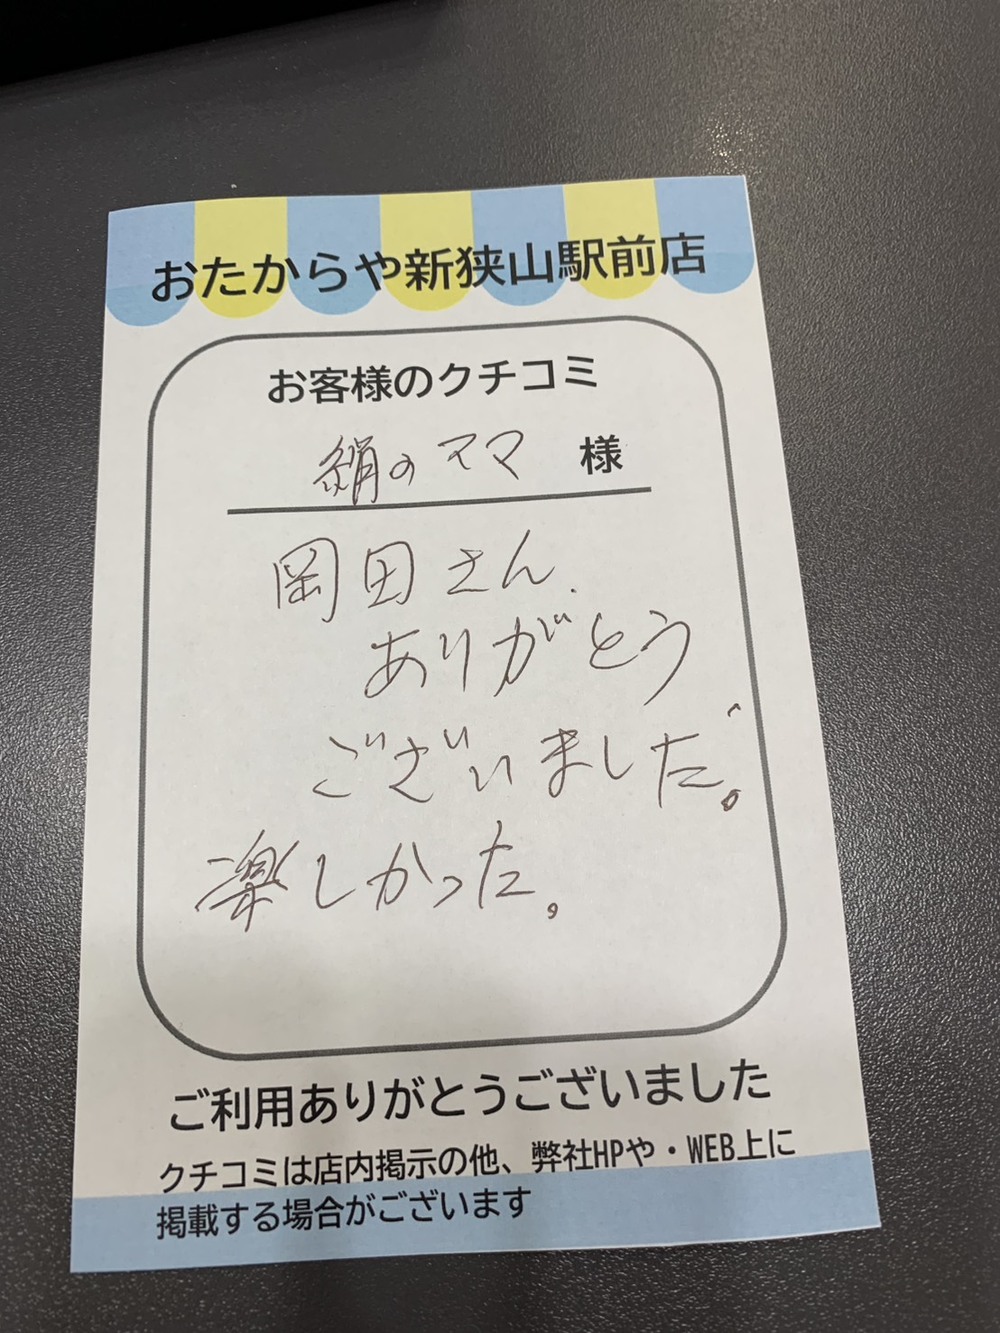 おたからや新狭山駅前店
お客様のクチコミ
絹のママ 様
岡田さん、
ありがとう
ございました。
楽しかった。
ご利用ありがとうございました
クチコミは店内掲示の他、弊社HPや・WEB上に
掲載する場合がございます